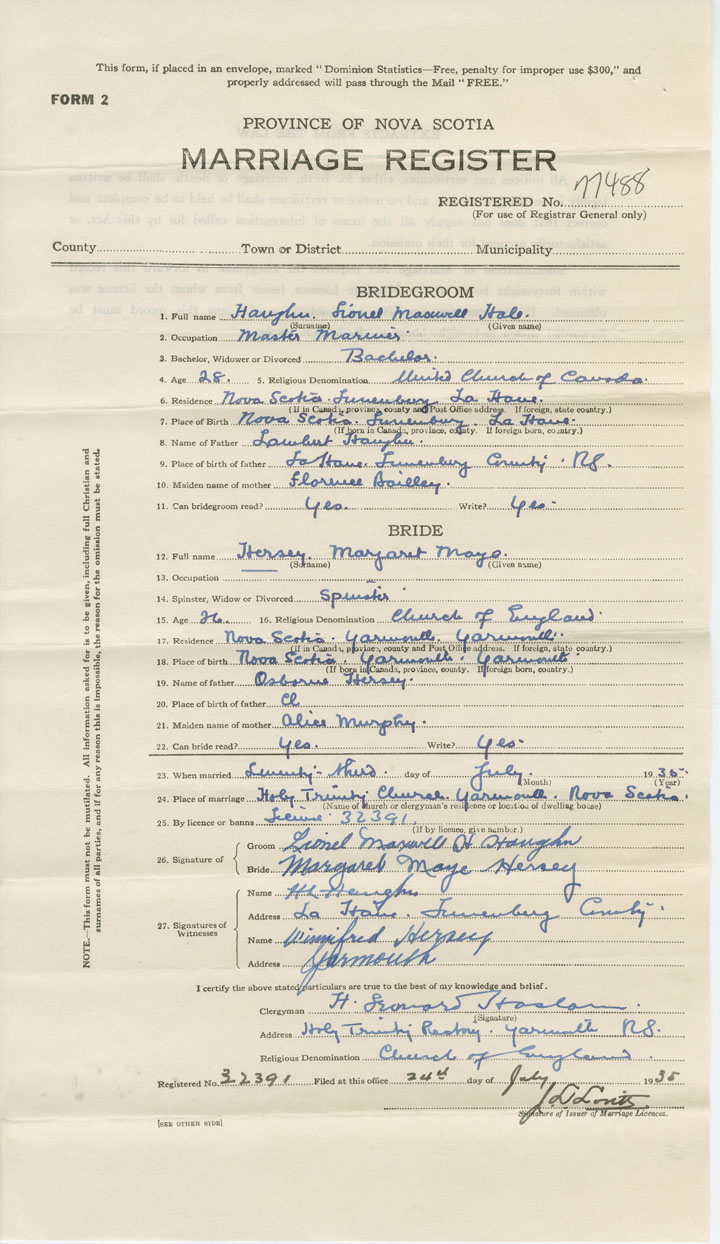 This form, if placed in an envelope, marked "Dominion Statistics—Free, penalty for improper use $300," and
properly addressed will pass through the Mail "FREE."
FORM 2
PROVINCE OF NOVA SCOTIA
MARRIAGE REGISTER
REGISTERED No. 77488
(For use of Registrar General only)
County Town or District Municipality
BRIDEGROOM
1. Full name Haughn. Lionel Maxwell Hale.
(Surname) (Given name)
2. Occupation Master Mariner.
3. Bachelor, Widower or Divorced Bachelor.
4. Age 28. 5. Religious Denomination United Church of Canada.
6. Residence Nova Scotia. Lunenburg. La Have.
(If in Canada, province, county and Post Office address. If foreign, state country.)
7. Place of Birth Nova Scotia. Lunenburg. La Have.
(If born in Canada, province, county. If foreign born, country.)
8. Name of Father Lambert Haughn.
9. Place of birth of father La Have. Lunenburg County. NS.
10. Maiden name of mother Florence Bailley.
11. Can bridegroom read? Yes. Write? Yes.
BRIDE
12. Full name Hersey. Margaret Maye.
(Surname) (Given name)
13. Occupation
14. Spinster, Widow or Divorced Spinster
15. Age 26. 16. Religious Denomination Church of England.
17. Residence Nova Scotia. Yarmouth. Yarmouth.
(If in Canada, province, county and Post Office address. If foreign, state country.)
18. Place of birth Nova Scotia. Yarmouth. Yarmouth.
(If born in Canada, province, county. If foreign born, country.)
19. Name of father Osborne Hersey.
20. Place of birth of father
21. Maiden name of mother Alice Murphy.
22. Can bride read? Yes. Write? Yes.
23. When married Twenty-third. day of July. 1935.
(Month) (Year)
24. Place of marriage Holy Trinity Church. Yarmouth. Nova Scotia.
(Name of church or clergyman's residence or location of dwelling house)
25. By licence or banns License 32391.
(If by licence, give number.)
26. Signature of
Groom Lionel Maxwell H Haughn
Bride Margaret Maye Hersey
27. Signatures of Witnesses
Name Haughn
Address La Have. Lunenburg County.
Name Winnifred Hersey
Address Yarmouth
I certify the above stated particulars are true to the best of my knowledge and belief.
Clergyman H. Leonard Haslam.
(Signature)
Address Holy Trinity Rectory. Yarmouth NS.
Religious Denomination Church of England.
Registered No. 32391 Filed at this office 24th day of July 1935
Signature of Issuer of Marriage Licences.
[SEE OTHER SIDE]
NOTE.—This form must not be mutilated. All information asked for is to be given, including full Christian and
surnames of all parties, and if for any reason this is impossible, the reason for the omission must be stated.